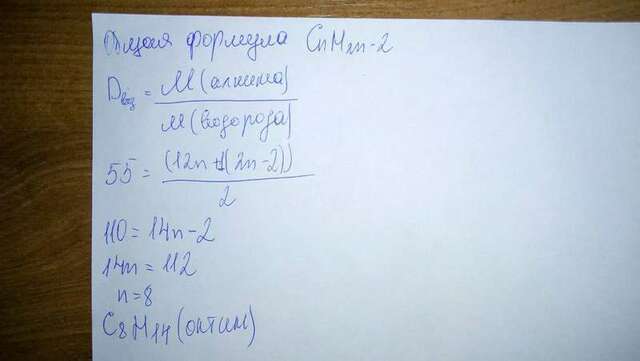 Общая формула CnH2n-2
Dвоз = M(алкина)
M(водорода)
55 = (12n+(2n-2))
2
110 = 14n-2
14n = 112
n = 8
C8H14 (октин)